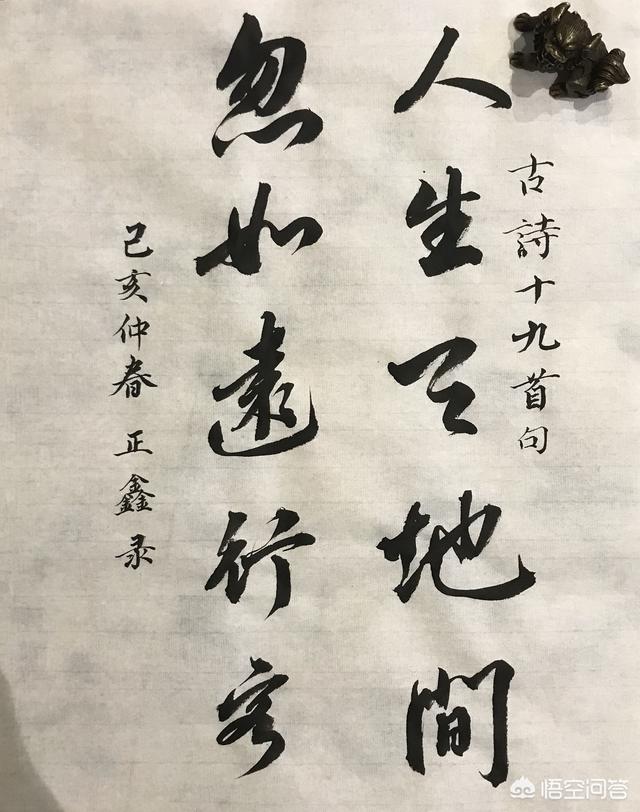 古詩十九首句
人生天地間
忽如遠行客
己亥仲春 正鑫录
悟空问答